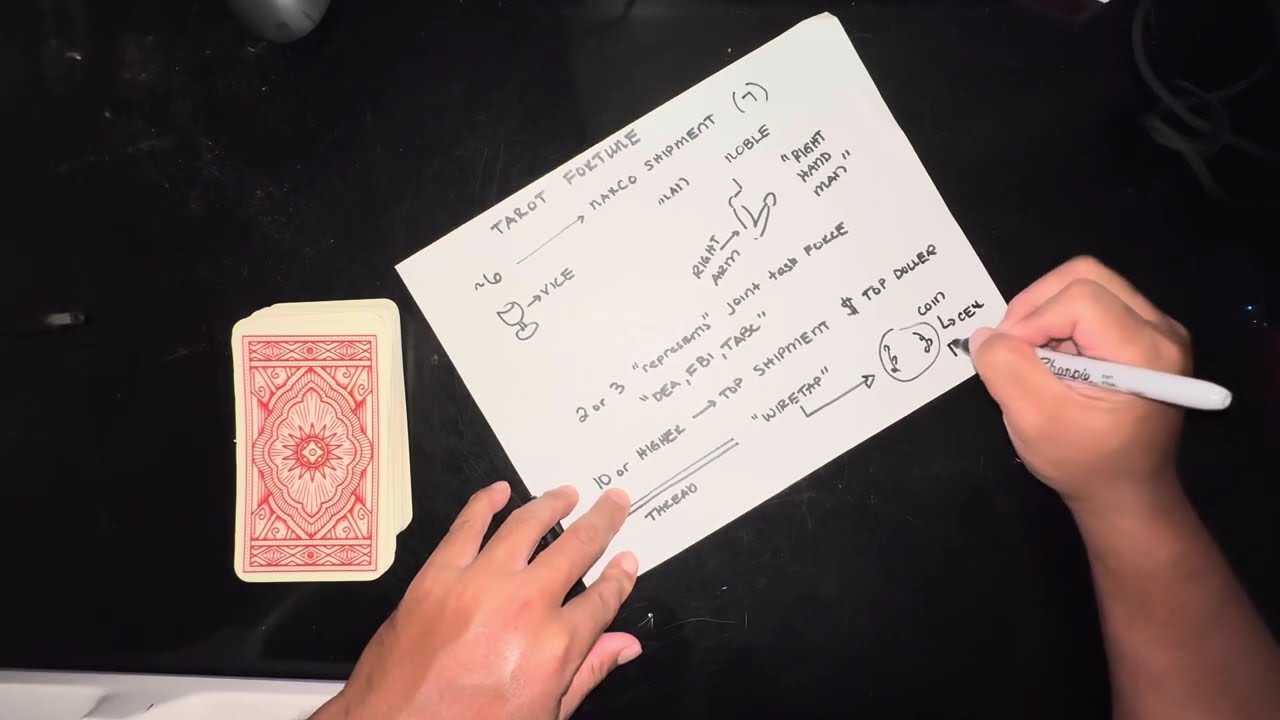 TAROT FORTUNE
~6 → NARCO SHIPMENT (7)
→ VICE
"RIGHT HAND MAN"
RIGHT ARM →
2 or 3 "represents" joint task FORCE
"DEA, FBI, TABC"
10 or HIGHER → TOP SHIPMENT $ TOP DOLLER
THREAD
"WIRETAP"
COIN
Sharpie